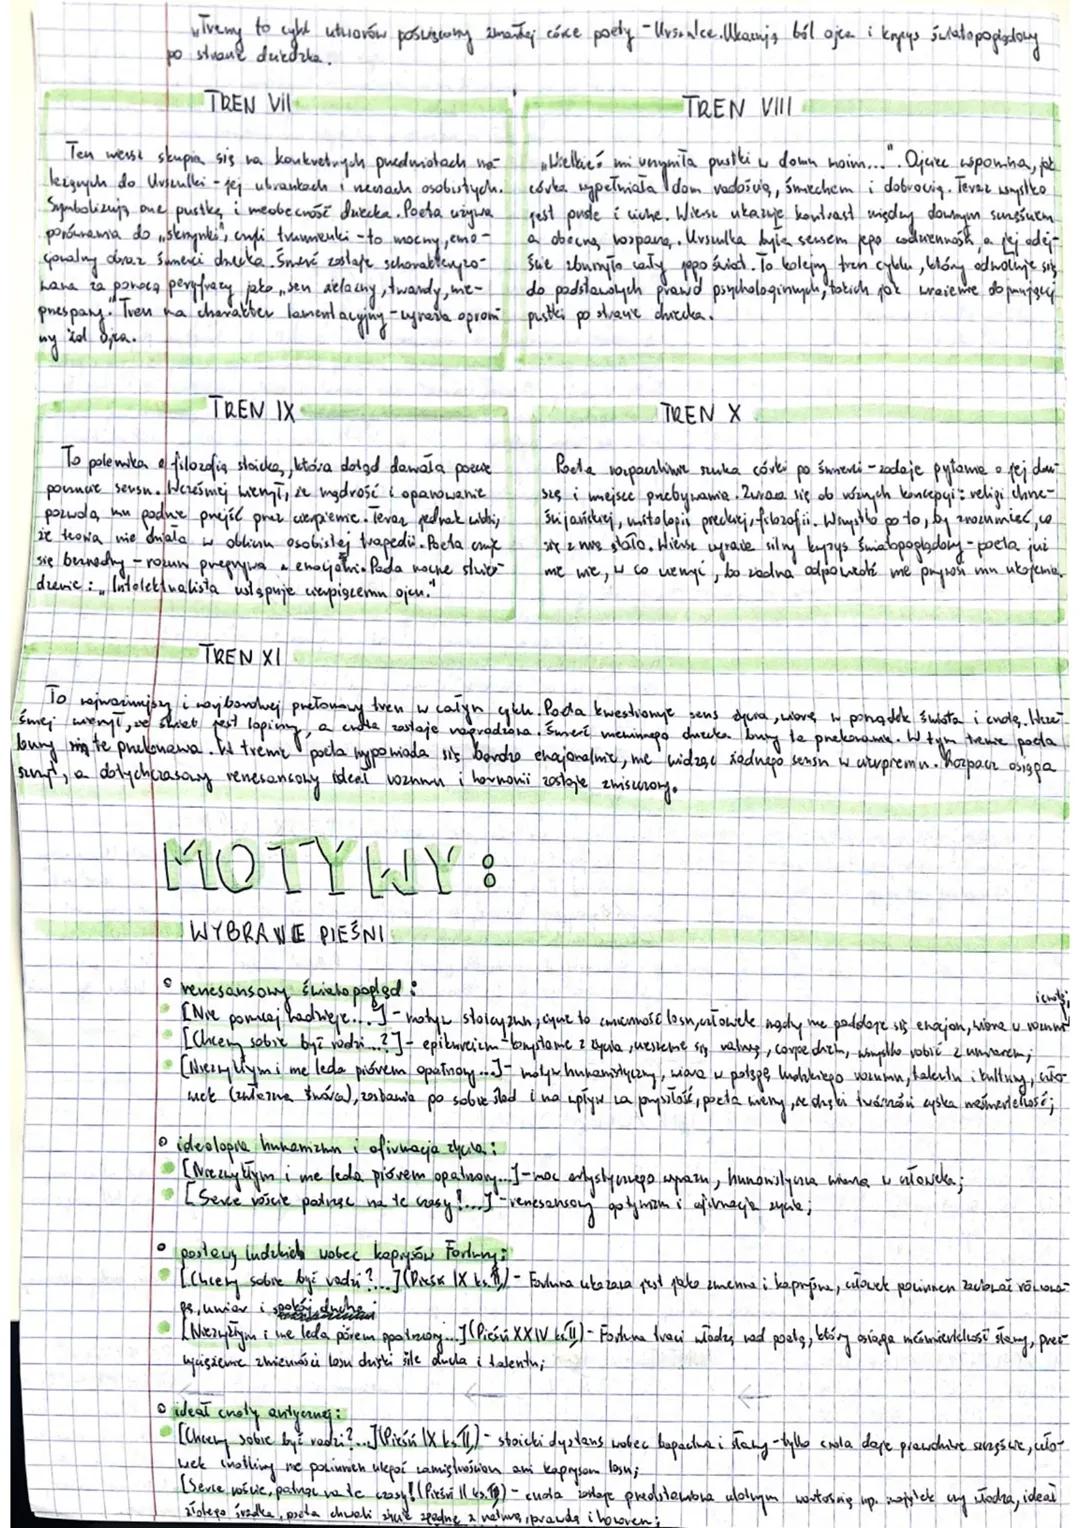 „Treny to cykl utworów poświęcony zmarłej córce poety - Urszulce. Ukazują ból ojca i kryzys światopoglądowy
po stracie dziecka.
TREN VII
Ten wersz skupia się na konkretnych przedmiotach na-
leżących do Urszulki - jej ubrankach i rzeczach osobistych.
Symbolizują one pustkę i nieobecność dziecka. Poeta używa
porównania do „skrzynki", czyli trumienki - to mocny, emo-
cjonalny obraz śmierci dziecka. Śmierć zostaje scharakteryzo-
wana za pomocą peryfrazy jako „sen żelazny, twardy, nie-
przespany." Tren ma charakter lamentacyjny - wyraża ogrom
ny żal ojca.
TREN VIII
„Wielkieś mi uczyniła pustki w domu moim...". Ojciec wspomina, jak
córka wypełniała dom radością, śmiechem i dobrocią. Teraz wszystko
jest puste i ciche. Wiersz ukazuje kontrast między dawnym szczęściem
a obecną rozpaczą. Urszulka była sensem jego codzienności, a jej odej-
ście zburzyło cały jego świat. To kolejny tren cyklu, który odwołuje się
do podstawowych prawd psychologicznych, takich jak wrażenie dojmującej
pustki po stracie dziecka.
TREN IX
To polemika z filozofią stoicką, która dotąd dawała poecie
poczucie sensu. Wcześniej wierzył, że mądrość i opanowanie
pozwolą mu godnie przejść przez cierpienie. Teraz jednak widzi,
że teoria nie działa w obliczu osobistej tragedii. Poeta czuje
się bezradny - rozum przegrywa z emocjami. Pada ważne stwier-
dzenie: „Intelektualista ustępuje cierpiącemu ojcu."
TREN X
Poeta rozpaczliwie szuka córki po śmierci - zadaje pytania o jej du-
szę i miejsce przebywania. Zwraca się do różnych koncepcji: religii chrze-
ścijańskiej, mitologii greckiej, filozofii. Wszystko po to, by zrozumieć, co
się z nią stało. Wiersz wyraża silny kryzys światopoglądowy - poeta już
nie wie, w co wierzyć, bo żadna odpowiedź nie przynosi mu ukojenia.
TREN XI
To najważniejszy i najbardziej przełomowy tren w całym cyklu. Poeta kwestionuje sens życia, wiarę w porządek świata i cnotę. Wcze-
śniej wierzył, że świat jest logiczny, a cnota zostaje nagrodzona. Śmierć niewinnego dziecka burzy te przekonania. W tym trenie poeta
burzy te przekonania. W trenie poeta wypowiada się bardzo emocjonalnie, nie widząc żadnego sensu w cierpieniu. Rozpacz osiąga
szczyt, a dotychczasowy renesansowy ideał rozumu i harmonii zostaje zniszczony.
MOTYWY:
WYBRANE PIEŚNI
renesansowy światopogląd:
[Nie porzucaj nadzieje...] - motyw stoicyzm, czyli to zmienność losu, człowiek mądry nie poddaje się emocjom, wiara w rozum i cnotę;
[Chcemy sobie być radzi...?] - epikureizm - korzystanie z życia, cieszenie się naturą, carpe diem, wszystko robić z umiarem;
[Niezwykłym i nie leda piórem opatrzony...] - motyw humanistyczny, wiara w potęgę ludzkiego rozumu, talentu i kultury, czło-
wiek (zwłaszcza twórca), zostawia po sobie ślad i ma wpływ na przyszłość, poeta wierzy, że dzięki twórczości zyska nieśmiertelność;
ideologia humanizmu i afirmacja życia:
[Niezwykłym i nie leda piórem opatrzony...] - moc artystycznego wyrazu, humanistyczna wiara w człowieka;
[Serce roście patrząc na te czasy!...] - renesansowy optymizm i afirmacja życia;
postawy ludzkie wobec kaprysów Fortuny:
[Chcemy sobie być radzi?...] (Pieśń IX ks. II) - Fortuna ukazana jest jako zmienna i kapryśna, człowiek powinien zachować równowa-
gę, umiar i spokój ducha;
[Niezwykłym i nie leda piórem opatrzony...] (Pieśń XXIV ks. II) - Fortuna traci władzę nad poetą, który osiąga nieśmiertelność sławy, prze-
zwyciężenie zmienności losu dzięki sile ducha i talentu;
ideał cnoty antycznej:
[Chcemy sobie być radzi?...] (Pieśń IX ks. II) - stoicki dystans wobec bogactwa i sławy - tylko cnota daje prawdziwe szczęście, czło-
wiek cnotliwy nie powinien ulegać namiętnościom ani kaprysom losu;
[Serce roście, patrząc na te czasy! (Pieśń II ks. I) - cnota zostaje przedstawiona ulotnym wartościom np. majątek czy władza, ideał
złotego środka, poeta chwali życie zgodne z naturą, prawdą i honorem;